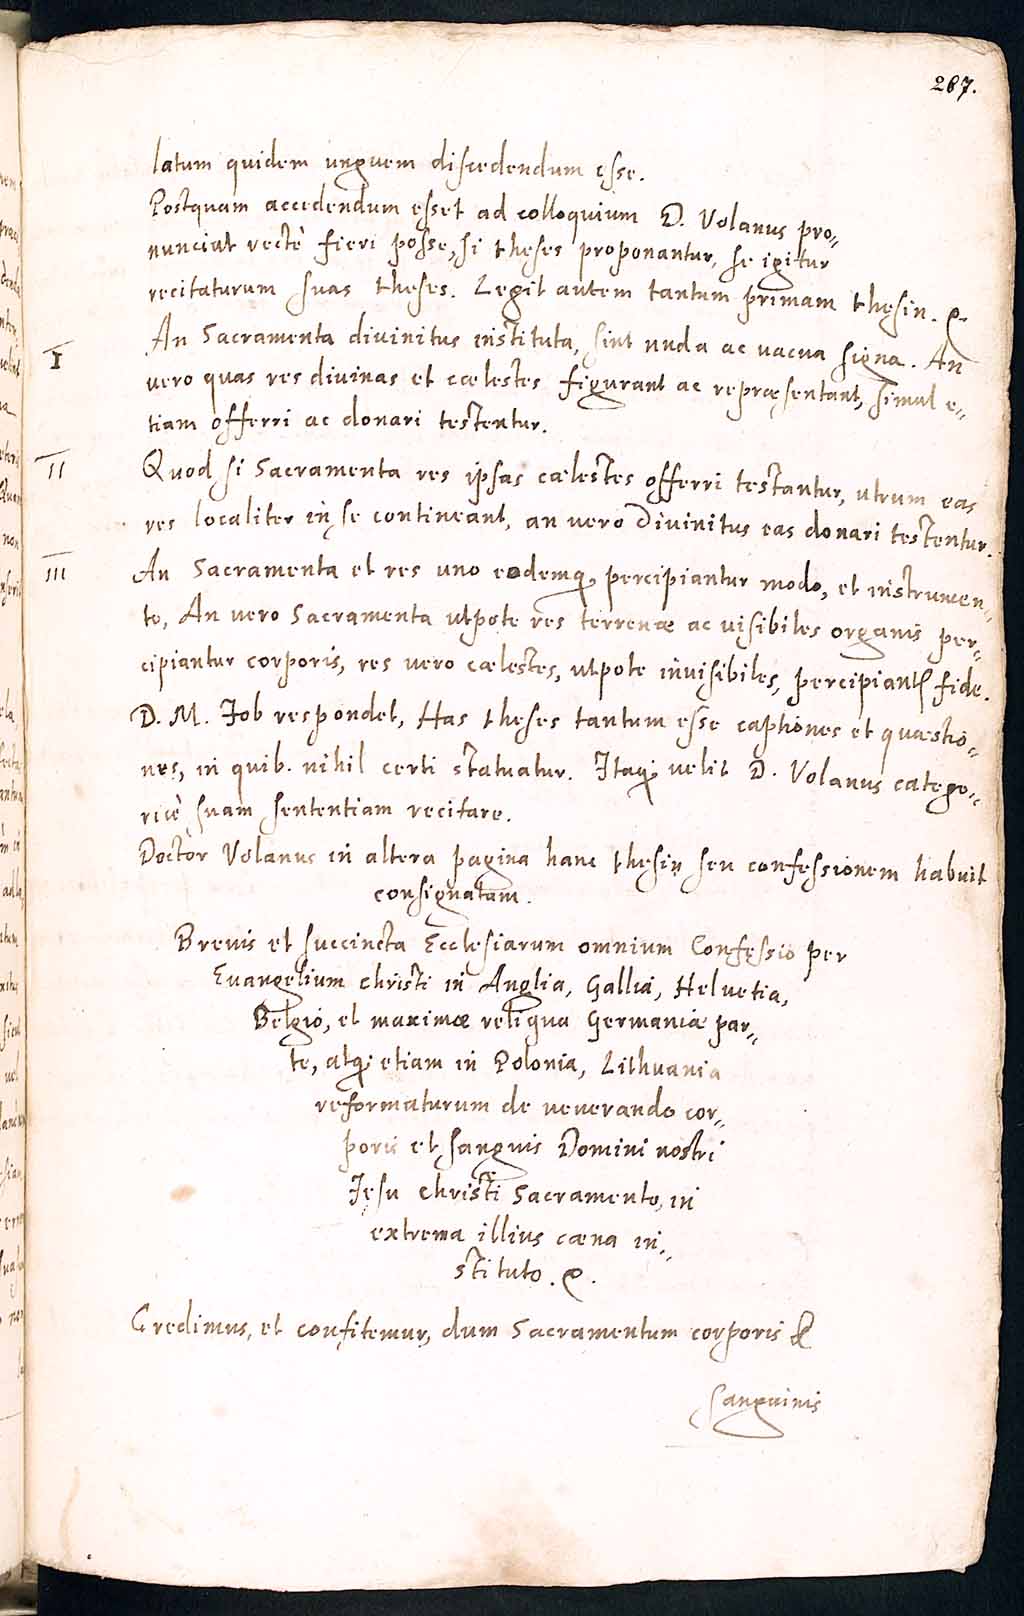 267.
latum quidem unguem discedendum esse.
Postquam accedendum esset ad colloquium D. Volanus pro„
nunciat rectè fieri posse, si theses proponantur, se igitur
recitaturum suas theses. Legit autem tantum primam thesin.
I An Sacramenta divinitus instituta, sint nuda ac vacua signa. An
vero quas res divinas et cælestes figurant ac repræsentant, simul e„
tiam offerri ac donari testentur.
II Quod si Sacramenta res ipsas cælestes offerri testantur, utrum eas
res localiter in se contineant, an vero Divinitus eas donari testentur.
III An Sacramenta et res uno eodemq; percipiantur modo, et instrumen„
to, An vero Sacramenta utpote res terrenæ ac visibiles organis per„
cipiantur corporis, res vero cælestes, utpote invisibiles, percipiant fide.
D. M. Job respondet, Has theses tantum esse captiones et quæstio„
nes, in quib. nihil certi statuatur. Itaq; velit D. Volanus catego„
ricè suam sententiam recitare.
Doctor Volanus in altera pagina hanc thesin seu confessionem habuit
consignatam.
Brevis et succincta Ecclesiarum omnium Confessio per
Euangelium christi in Anglia, Gallia, Helvetia,
Belgio, et maximæ reliqua Germaniæ par„
te, atq; etiam in Polonia, Lithuania
reformaturum de venerando cor„
poris et sanguis Domini nostri
Jesu christi Sacramento, in
extrema illius cæna in„
stituto.
Credimus, et confitemur, dum Sacramentum corporis &
sanguinis